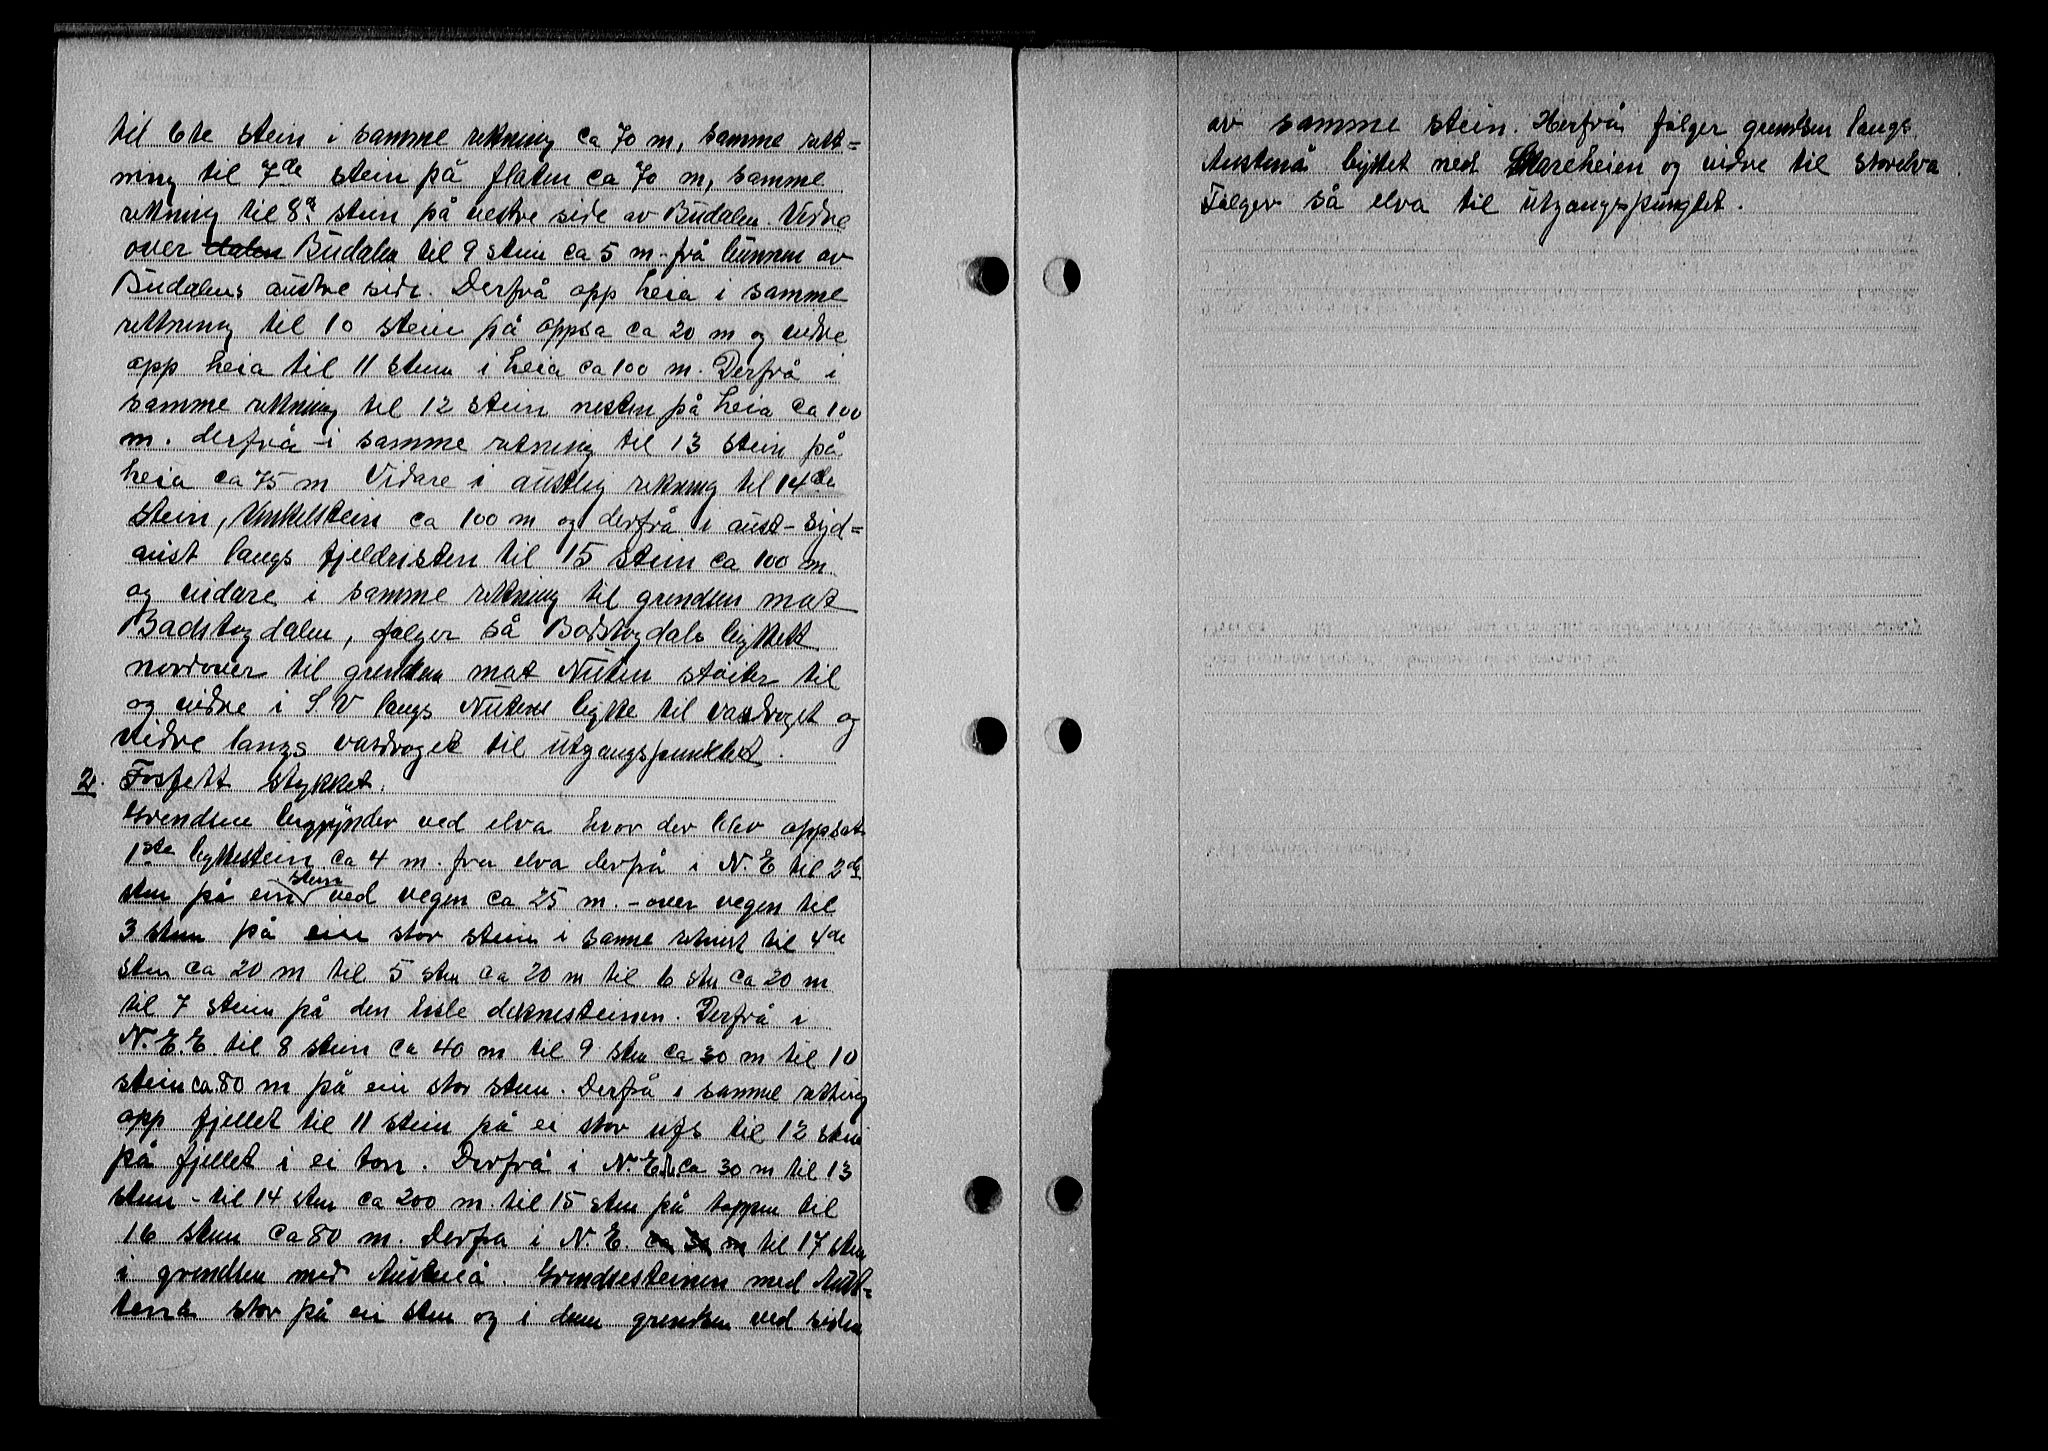 til 6te stein i samme retning ca 70 m, samme rett=
ning til 7de stein på flaten ca 70 m, samme
retning til 8a stein på vestre side av Budalen. Vidre
over dalen Budalen til 9 stein ca 5 m - frå bunnen av
Budalens austre side. Derfrå opp heia i samme
rettning til 10 stein på oppsa ca 20 m og vidre
opp heia til 11 stein i heia ca 100 m. Derfrå i
samme retning til 12 stein nesten på heia ca 100
m. derfrå i samme retning til 13 stein på
heia ca 75 m Vidare i austlig retning til 14de
stein, Vinkelstein ca 100 m og derfrå i aust-syd=
aust langs fjeldristen til 15 stein ca 100 m
og vidare i samme retning til grendsen mot
Badstogdalen, følger så Badstogdals byttet
nordover til grendsen mot Nuten støiter til
og vidre i S V langs Nutens bytte til vasdraget og
vidre langs vasdraget til utgangspunktet.
2. Fosfett stykket.
Grendsen begynder ved elva hvor der blev oppsat
1ste byttestein ca 4 m. fra elva derfrå i N.E til 2de
sten på ein stein ved vegen ca 25 m. - over vegen til
3 stein på ein stor stein i samme til 4de
sten ca 20 m til 5 sten ca 20 m til 6 stn ca 20 m
til 7 stein på den Derfrå i
N.E.E. til 8 stein ca 40 m til 9 sten ca 30 m til 10
stein ca 80 m på ein stor sten. Derfrå i samme rettning
opp fjellet til 11 stein på ei stor ufs til 12 stein
på fjellet i ei torr. Derfrå i N.E. ca 30 m til 13
sten - til 14 sten ca 200 m. til 15 sten på toppen til
16 sten ca 80 m. Derfra i N.E. ca 30 m til 17 sten
i grendsen med Austenå. Grendsesteinen med Aust=
enå stor på ein sten og i denn grendsen ved siden
av samme stein. Herfrå følger grendsen langs
Austenå byttet ned Skareheien og vidre til storelva.
Følger så elva til utgangspungtet.